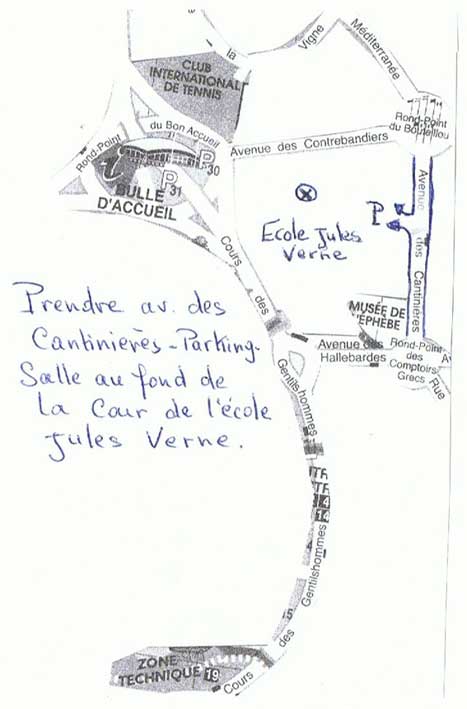 la
Vigne
Méditerranée
CLUB
INTERNATIONAL
DE TENNIS
Rond-Point
du Bouteillou
Rond-Point
du Bon Accueil
Avenue des Contrebandiers
P
30
i
P
31
BULLE
D'ACCUEIL
Avenue
des Cantinières
P
Ecole Jules
Verne
Cours
des
Gentilshommes
MUSÉE DE
L'ÉPHÈBE
Avenue des
Hallebardes
Rond-Point
des
Comptoirs
Grecs
A
Rue
Prendre av. des
Cantinières-Parking-
Salle au fond de
la Cour de l'école
Jules Verne.
4
14
Gentilshommes
des
Cours
ZONE
TECHNIQUE 19